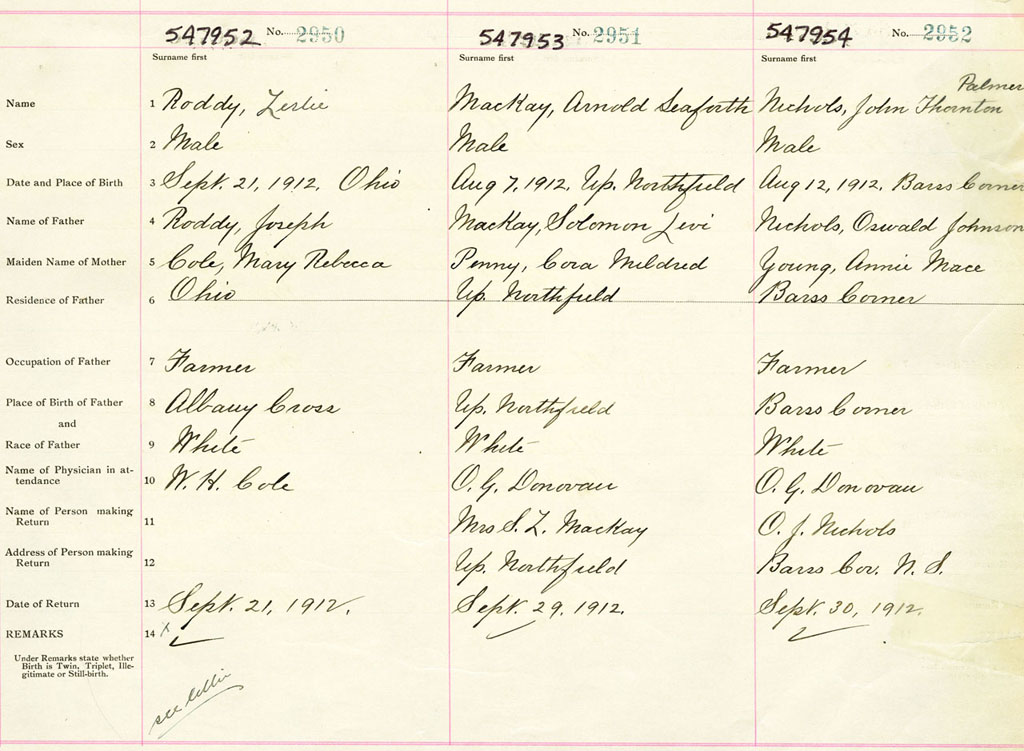 547952 No. 2950 547953 No. 2951 547954 No. 2952
Surname first Surname first Surname first
Palmer
Name 1 Roddy, Leslie MacKay, Arnold Seaforth Nichols, John Thornton
Sex 2 Male Male Male
Date and Place of Birth 3 Sept. 21, 1912. Ohio Aug 7, 1912. Up. Northfield Aug 12, 1912. Barss Corner
Name of Father 4 Roddy, Joseph MacKay, Solomon Levi Nichols, Oswald Johnson
Maiden Name of Mother 5 Cole, Mary Rebecca Penny, Cora Mildred Young, Annie Mace
Residence of Father 6 Ohio Up. Northfield Barss Corner
Occupation of Father 7 Farmer Farmer Farmer
Place of Birth of Father 8 Albany Cross Up. Northfield Barss Corner
and
Race of Father 9 White White White
Name of Physician in at-
tendance 10 W. H. Cole O. G. Donovan O. G. Donovan
Name of Person making
Return 11 Mrs S. L. MacKay O. J. Nichols
Address of Person making
Return 12 Up. Northfield Barss Cor. N. S.
Date of Return 13 Sept. 21, 1912. Sept. 29, 1912. Sept. 30, 1912.
REMARKS 14 x
Under Remarks state whether
Birth is Twin, Triplet, Ille-
gitimate or Still-birth.
see